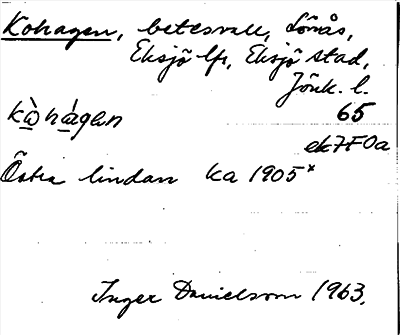 Kohagen, betesvall, Lönås,
Eksjö lfs, Eksjö stad,
Jönk. l.
65
kò hágen
ek7F0a
Östra lindan ka 1905x
Inger Danielsson 1963.